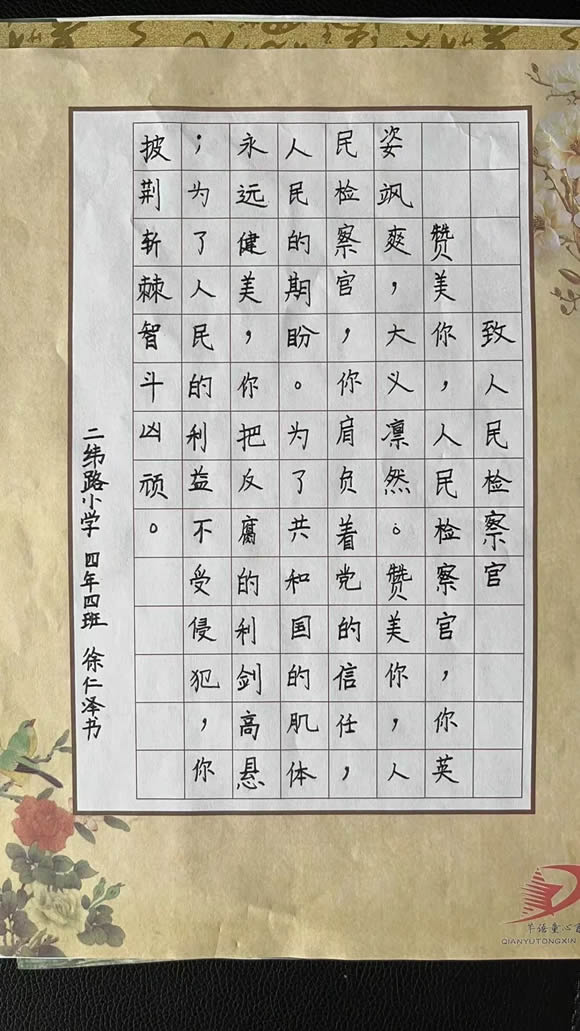 致人民检察官
赞美你,人民检察官,你英
姿飒爽,大义凛然。赞美你,人
民检察官,你肩负着党的信任,
人民的期盼。为了共和国的肌体
永远健美,你把反腐的利剑高悬
;为了人民的利益不受侵犯,你
披荆斩棘智斗凶顽。
二纬路小学 四年四班 徐仁泽书
QIANYUTONGXIN